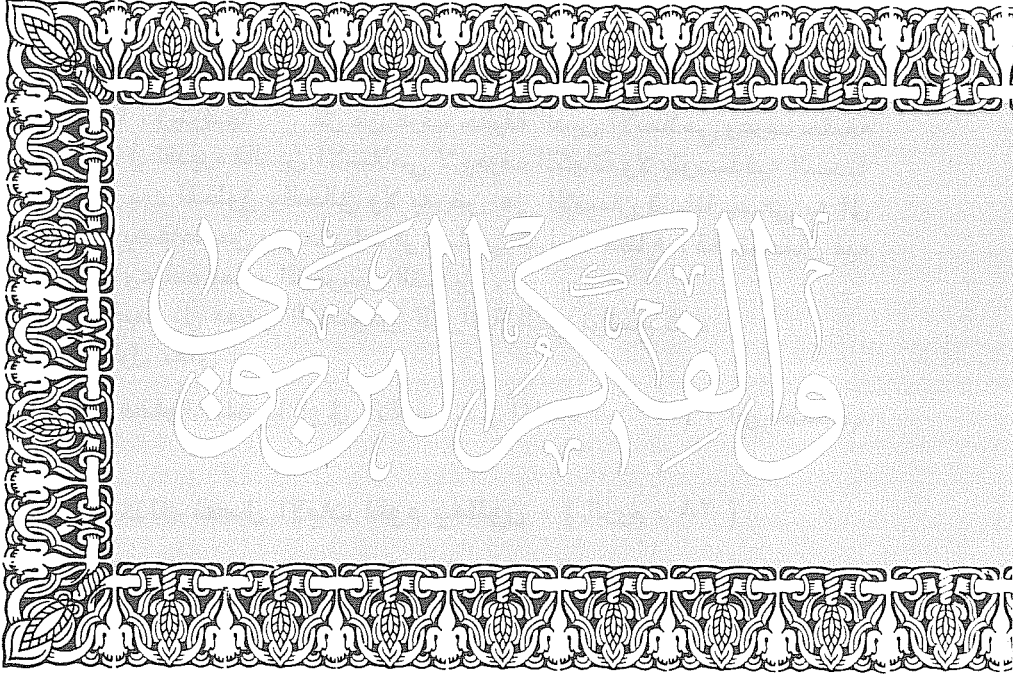 والفكر التربوي